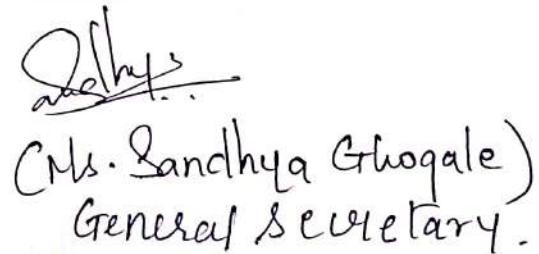 Sandhya
(Ms. Sandhya Ghogale)
General Secretary.